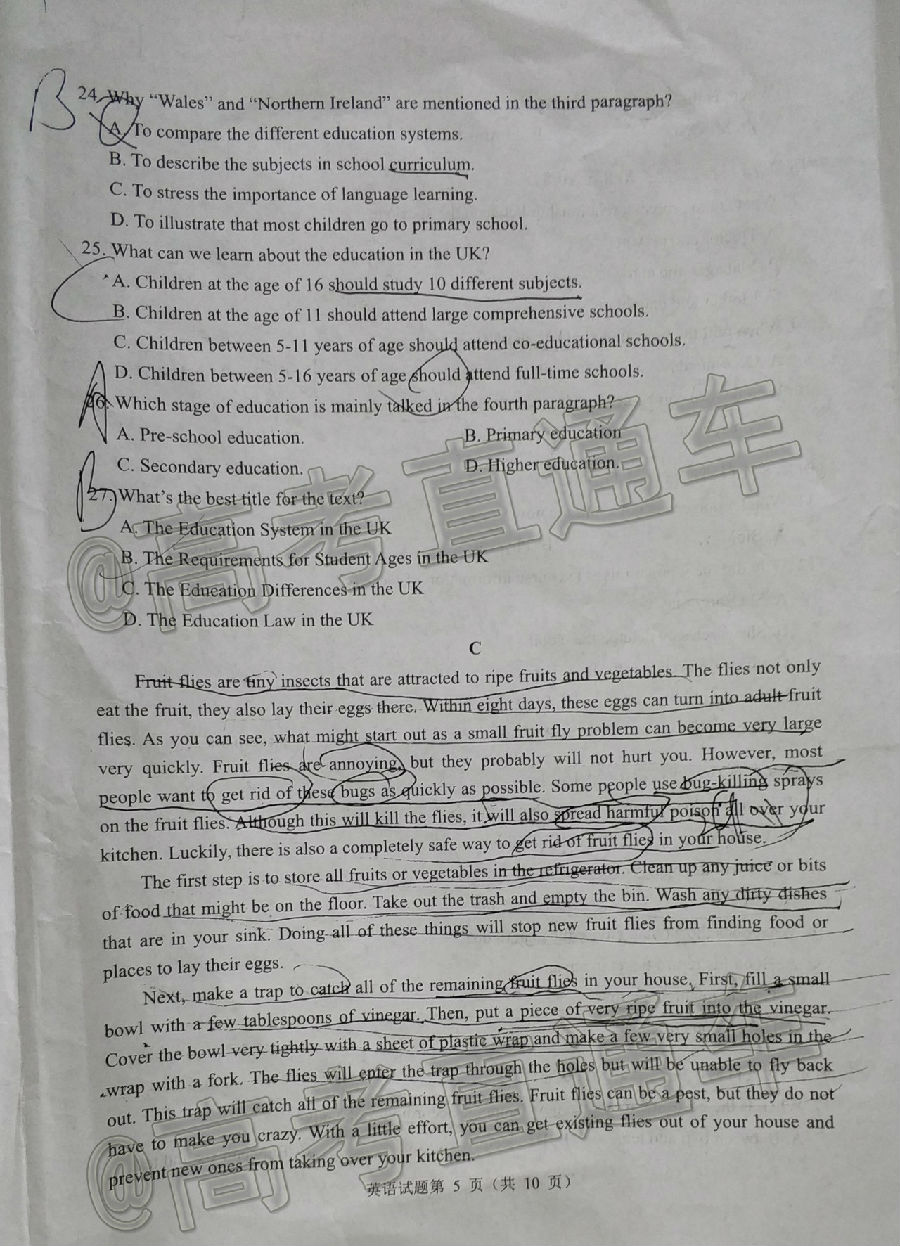 B
24. Why "Wales" and "Northern Ireland" are mentioned in the third paragraph?
A. To compare the different education systems.
B. To describe the subjects in school curriculum.
C. To stress the importance of language learning.
D. To illustrate that most children go to primary school.
25. What can we learn about the education in the UK?
A. Children at the age of 16 should study 10 different subjects.
B. Children at the age of 11 should attend large comprehensive schools.
C. Children between 5-11 years of age should attend co-educational schools.
D. Children between 5-16 years of age should attend full-time schools.
A
26. Which stage of education is mainly talked in the fourth paragraph?
A. Pre-school education. B. Primary education
C. Secondary education. D. Higher education.
B
27. What's the best title for the text?
A. The Education System in the UK
B. The Requirements for Student Ages in the UK
C. The Education Differences in the UK
D. The Education Law in the UK
@高考直通车
C
Fruit flies are tiny insects that are attracted to ripe fruits and vegetables. The flies not only
eat the fruit, they also lay their eggs there. Within eight days, these eggs can turn into adult fruit
flies. As you can see, what might start out as a small fruit fly problem can become very large
very quickly. Fruit flies are annoying, but they probably will not hurt you. However, most
people want to get rid of these bugs as quickly as possible. Some people use bug-killing sprays
on the fruit flies. Although this will kill the flies, it will also spread harmful poison all over your
kitchen. Luckily, there is also a completely safe way to get rid of fruit flies in your house.
The first step is to store all fruits or vegetables in the refrigerator. Clean up any juice or bits
of food that might be on the floor. Take out the trash and empty the bin. Wash any dirty dishes
that are in your sink. Doing all of these things will stop new fruit flies from finding food or
places to lay their eggs.
Next, make a trap to catch all of the remaining fruit flies in your house. First, fill a small
bowl with a few tablespoons of vinegar. Then, put a piece of very ripe fruit into the vinegar.
Cover the bowl very tightly with a sheet of plastic wrap and make a few very small holes in the
wrap with a fork. The flies will enter the trap through the holes but will be unable to fly back
out. This trap will catch all of the remaining fruit flies. Fruit flies can be a pest, but they do not
have to make you crazy. With a little effort, you can get existing flies out of your house and
prevent new ones from taking over your kitchen.
@高考直通车
英语试题第 5 页（共 10 页）